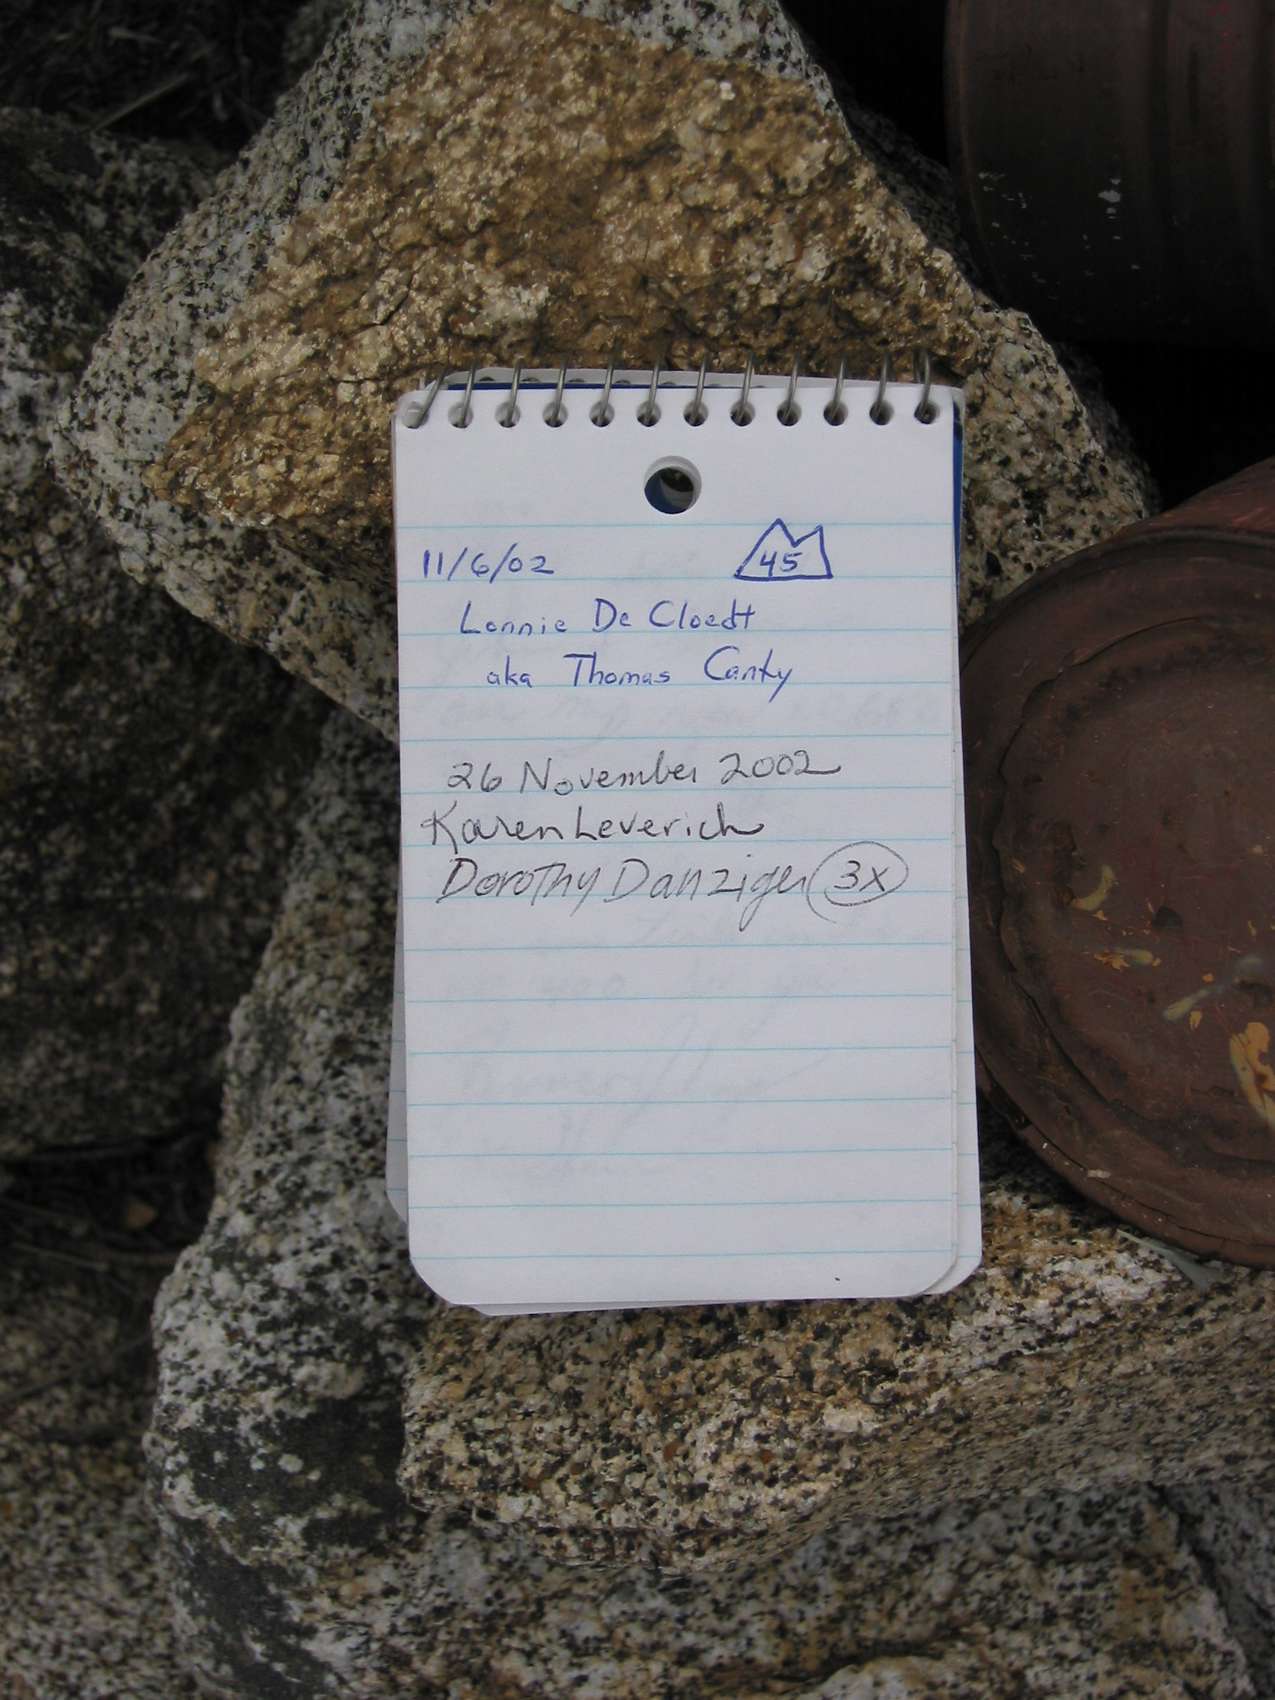 11/6/02 45
Lonnie De Cloedt
aka Thomas Canty
26 November 2002
Karen Leverich
Dorothy Danziger 3x